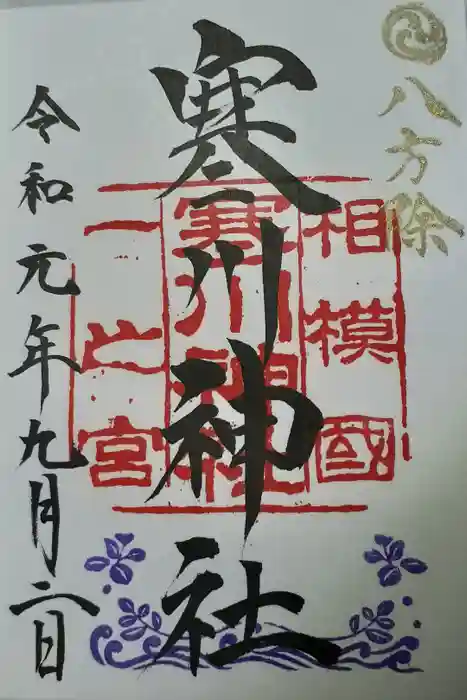 八方除
寒川神社
相模國
寒川神社
一之宮
令和元年九月二日